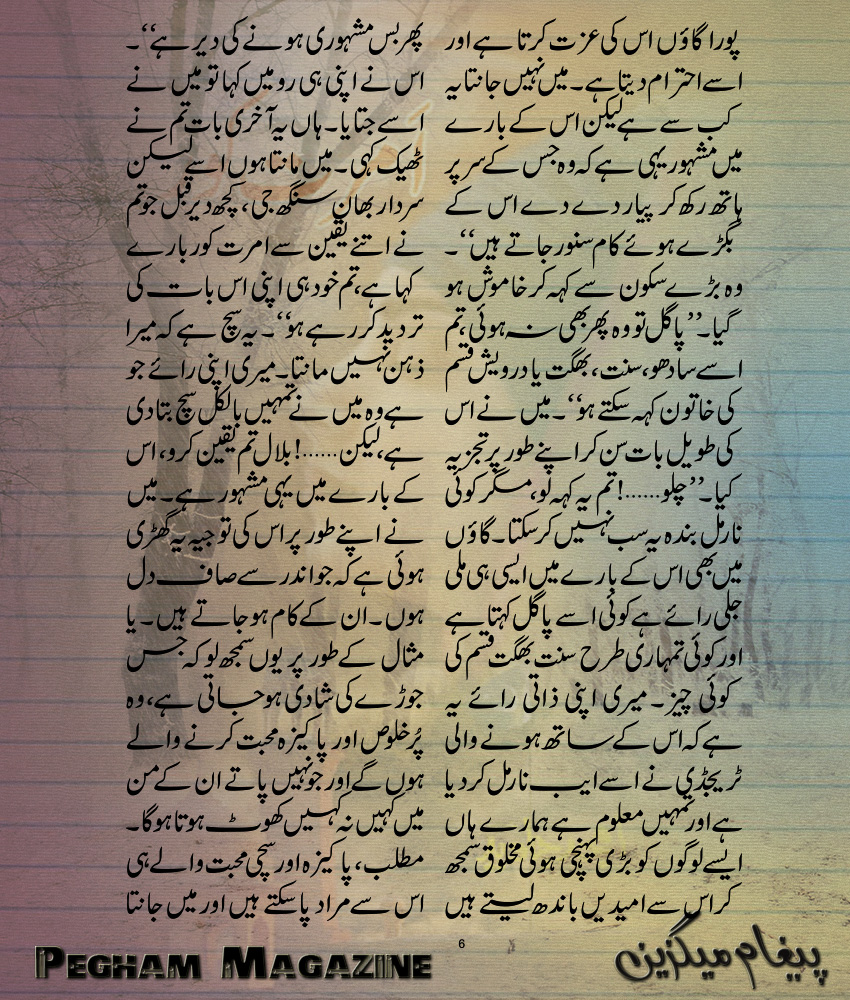 پورا گاؤں اس کی عزت کرتا ہے اور
اسے احترام دیتا ہے۔ میں نہیں جانتا یہ
کب سے ہے لیکن اس کے بارے
میں مشہور یہی ہے کہ وہ جس کے سر پر
ہاتھ رکھ کر پیار دے دے اس کے
بگڑے ہوئے کام سنور جاتے ہیں‘‘۔
وہ بڑے سکون سے کہہ کر خاموش ہو
گیا۔ ’’پاگل تو وہ پھر بھی نہ ہوئی، تم
اسے سادھو، سنت، بھگت یا درویش قسم
کی خاتون کہہ سکتے ہو‘‘۔ میں نے اس
کی طویل بات سن کر اپنے طور پر تجزیہ
کیا۔ ’’چلو……! تم یہ کہہ لو، مگر کوئی
نارمل بندہ یہ سب نہیں کر سکتا۔ گاؤں
میں بھی اس کے بارے میں ایسی ہی ملی
جلی رائے ہے کوئی اسے پاگل کہتا ہے
اور کوئی تمہاری طرح سنت بھگت قسم کی
کوئی چیز۔ میری اپنی ذاتی رائے یہ
ہے کہ اس کے ساتھ ہونے والی
ٹریجڈی نے اسے ایب نارمل کر دیا
ہے اور تمہیں معلوم ہے ہمارے ہاں
ایسے لوگوں کو بڑی پہنچی ہوئی مخلوق سمجھ
کر اس سے امیدیں باندھ لیتے ہیں
پھر بس مشہوری ہونے کی دیر ہے‘‘۔
اس نے اپنی ہی رو میں کہا تو میں نے
اسے جتایا۔ ہاں یہ آخری بات تم نے
ٹھیک کہی۔ میں مانتا ہوں اسے لیکن
سردار بھان سنگھ جی، کچھ دیر قبل جو تم
نے اتنے یقین سے امرت کور بارے
کہا ہے، تم خود ہی اپنی اس بات کی
تردید کر رہے ہو‘‘۔ یہ سچ ہے کہ میرا
ذہن نہیں مانتا۔ میری اپنی رائے جو
ہے وہ میں نے تمہیں بالکل سچ بتا دی
ہے، لیکن……! بلال تم یقین کرو، اس
کے بارے میں یہی مشہور ہے۔ میں
نے اپنے طور پر اس کی توجیہ یہ گھڑی
ہوئی ہے کہ جو اندر سے صاف دل
ہوں۔ ان کے کام ہو جاتے ہیں۔ یا
مثال کے طور پر یوں سمجھ لو کہ جس
جوڑے کی شادی ہو جاتی ہے، وہ
پُرخلوص اور پاکیزہ محبت کرنے والے
ہوں گے اور جو نہیں پاتے ان کے من
میں کہیں نہ کہیں کھوٹ ہوتا ہوگا۔
مطلب، پاکیزہ اور سچی محبت والے ہی
اس سے مراد پا سکتے ہیں اور میں جانتا
PEGHAM MAGAZINE
6
پیغام میگزین